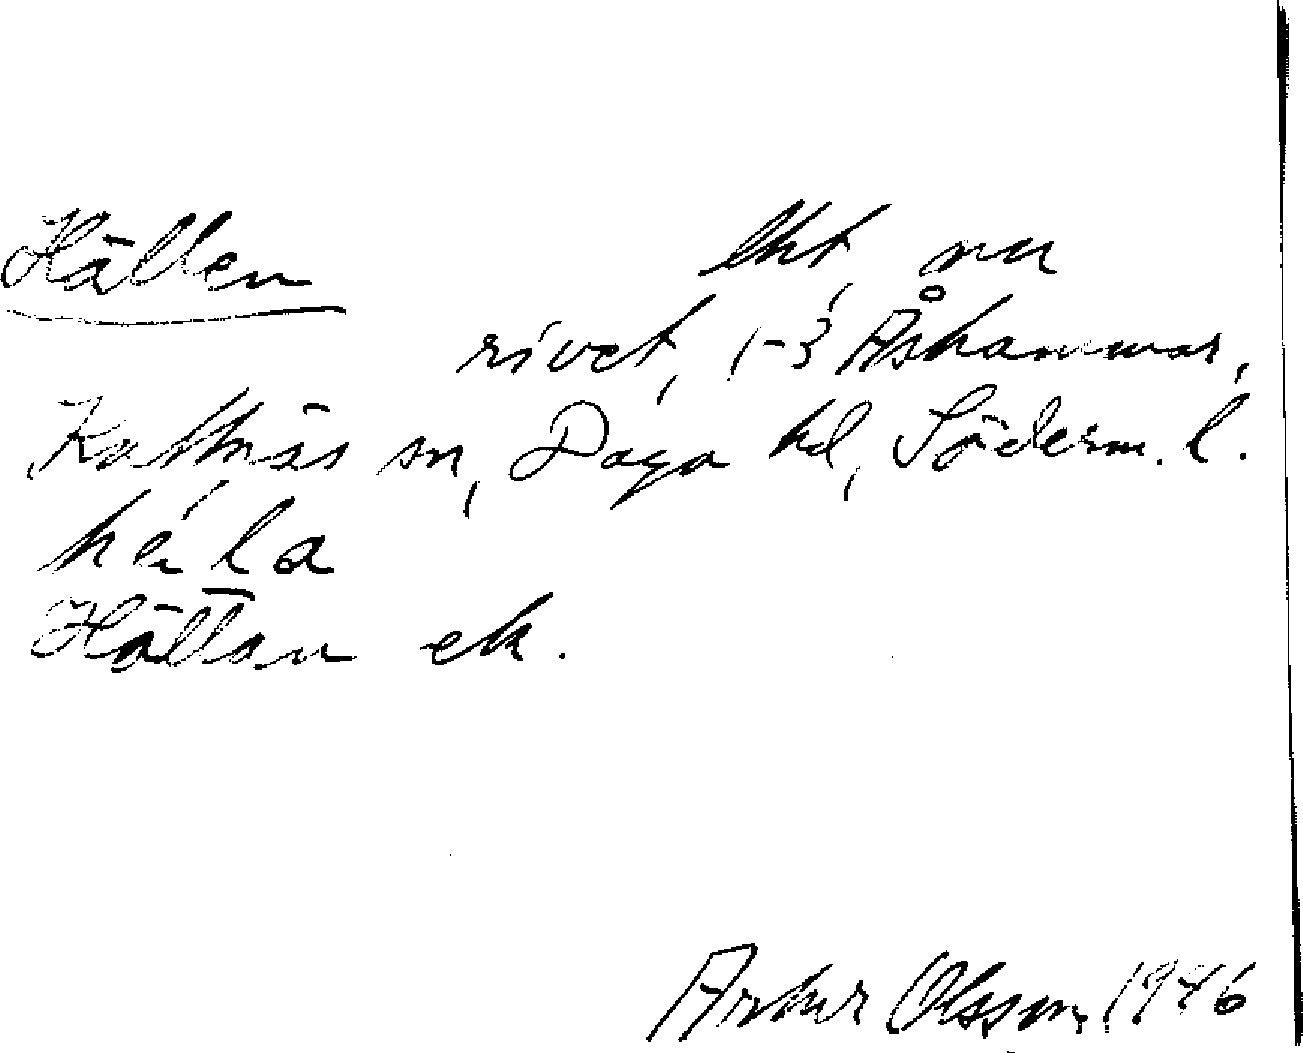 Hällen lht, nu
rivet, 1-3 Åshammar,
Kattnäs sn, Daga hd, Söderm. l.
hä́la
Hällan ek.
Artur Olsson, 1946